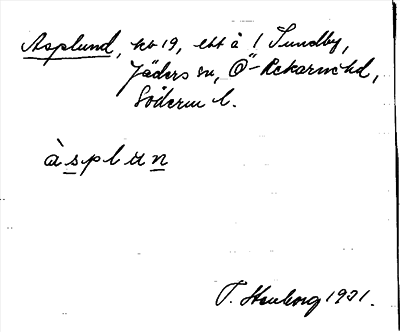 Asplund, ho 19, ett à 1 Sundby,
Jäders sn, Ö-Rekarne hd,
Söderm l.
àsplun
T. 1931.